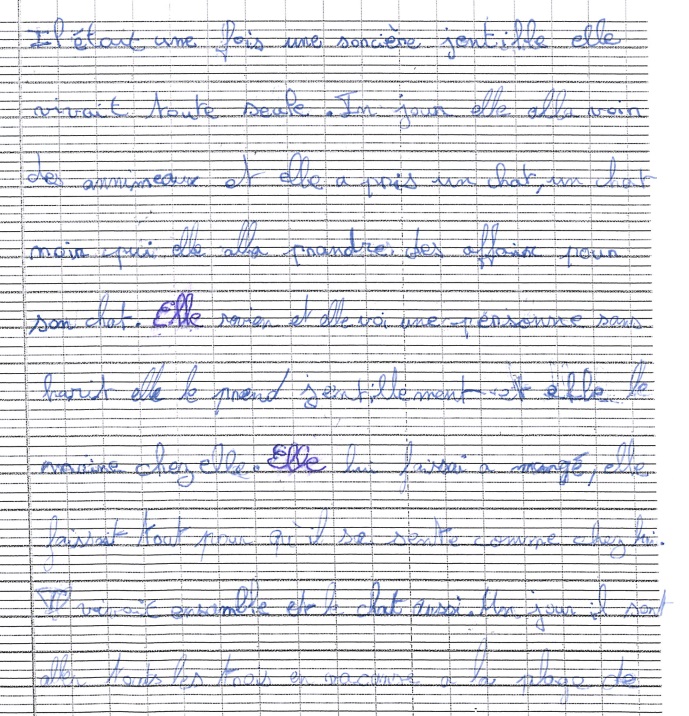 Il était une fois une sorcière jentille elle
vivait toute seule. Un jour elle alla voir
des annimeaux et elle a pris un chat, un chat
noir qui elle alla prandre des affaire pour
son chat. Elle revien et elle voi une personne sans
elle le prend jentillement et elle le
chez elle. Elle lui faissai a mangé, elle
faissait tout pour qi'il se sente comme chez lui.
vivait ensemble et le chat aussi. Un jour il sont
aller touts les trois en vacance a la plage de